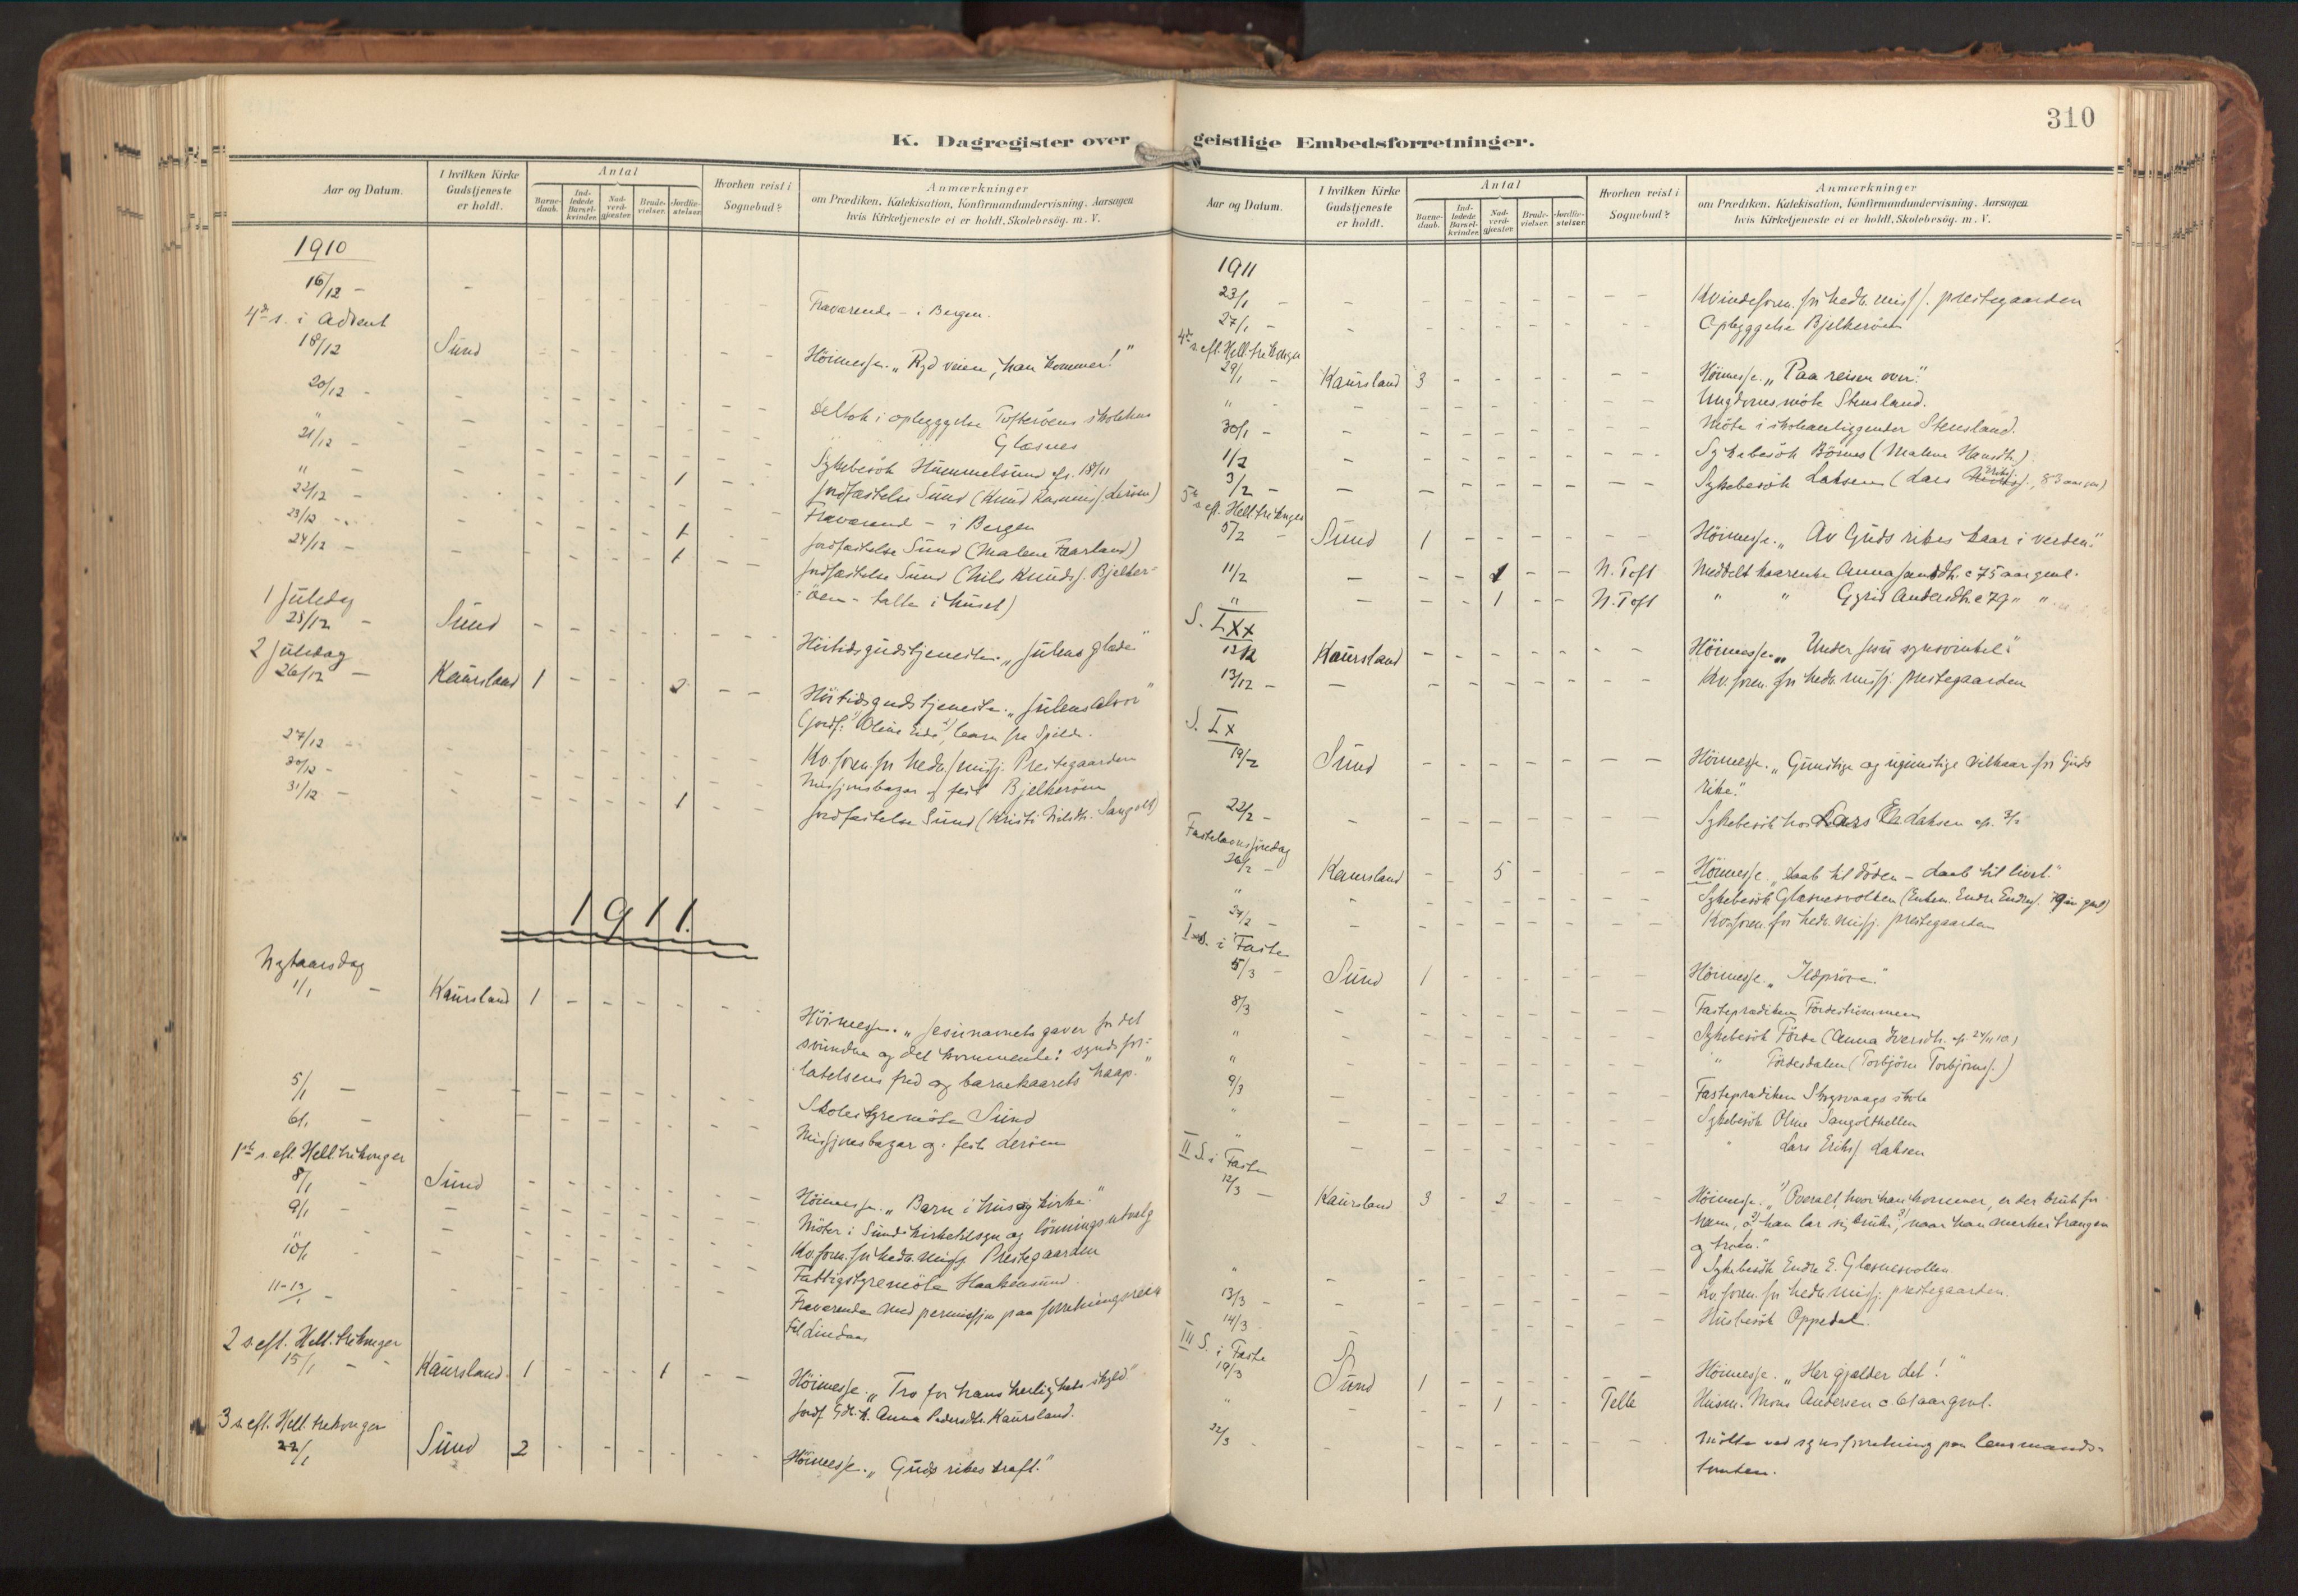 310
K. Dagregister over geistlige Embedsforretninger.
Aar og Datum.
I hvilken Kirke Gudstjeneste er holdt.
Antal
Barne-daab.
Ind-ledede Barsel-kvinder.
Nad-verd-gjæster.
Brude-vielser.
Jordfæ-stelser.
Hvorhen reist i Sognebud?
Anmærkninger
om Prædiken, Katekisation, Konfirmandundervisning, Aarsagen
hvis Kirketjeneste ei er holdt, Skolebesög. m. V.
1910
16/12 - - Fraværende - i Bergen.
4de s. i Advent
18/12 Sund Höimesse. „Ryd veien, han kommer!"
20/12 - Deltok i oplæggelse Tofteröens skolekres
" Glæsnes
21/12 - Sykebesök Hummelsund cfr. 18/11
" 1 Jordfæstelse Sund
22/12 - Fraværend - i Bergen
23/12 - 1 Jordfæstelse Sund (Malene Faarland)
24/12 - 1 Jordfæstelse Sund (Nils Knuds. Bjelker-
öen - talte i huset)
1 Juledag
25/12 - Sund Höitidsgudstjeneste. „Julens glæde"
2 Juledag
26/12 - Kaursland 1 2 Höitidsgudstjeneste. „Julens alvor"
27/12 Kv.foren. for hedn. missj. Prestegaarden
30/12 - Missjonsbazar og fest Bjelkeröen
31/12 - 1 Jordfæstelse Sund (Kristi Nilsdtr. Sangolt)
1911.
Nytaarsdag
1/1 - Kaursland 1 Höimesse. „Jesunavnets gaver for det
svundne og det kommende: synds for-
latelsens fred og barnekaarets haap."
5/1 - Skolestyremöte Sund
6/1 - Missjonsbazar og fest Leröen
1ste s. eft. Hell. tre konger
8/1 - Sund Höimesse. „Barn i hus og kirke."
9/1 - Möter i Sund kirketilsyn og lönningsutvalg
" Kv.foren. for hedn. missj. Prestegaarden
10/1 Fattigstyremöte Haakensund.
11-13/1 - Fraværende med permissjon paa forretningsreise
til Lindaas
2 s. eft. Hell. trekonger
15/1 - Kaursland 1 1 Höimesse. „Tro for hans herlighets skyld."
Jordf. Anna Pedersdtr. Kaursland.
3 s. eft. Hell. trekonger
22/1 Sund 2 Höimesse. „Guds rikes kraft."
Aar og Datum.
I hvilken Kirke Gudstjeneste er holdt.
Antal
Barne-daab.
Ind-ledede Barsel-kvinder.
Nad-verd-gjæster.
Brude-vielser.
Jordfæ-stelser.
Hvorhen reist i Sognebud?
Anmærkninger
om Prædiken, Katekisation, Konfirmandundervisning, Aarsagen
hvis Kirketjeneste ei er holdt, Skolebesög. m. V.
1911
23/1 - Kvindeforen. for hedn. missj. prestegaarden
27/1 - Oplæggelse Bjelkeröen
4de s. eft. Hell. tre konger
29/1 - Kaursland 3 Höimesse. „Paa reisen over."
" Ungdomsmöte Stensland.
30/1 - Möte i skoleanliggender Stensland.
1/2 Sykebesök Börnes (Malene Hansdtr.)
3/2 - Sykebesök Laksen (Lars Eriks., 83 aar gml)
5te s. eft. Hell. tre konger
5/2 - Sund 1 Höimesse. „Av Guds rikes kaar i verden."
11/2 1 N. Toft Meddelt kaarenke Anna Jansdtr. c 75 aar gml.
" 1 N. Toft " " Gyrid Andersdtr. c 79 " "
S. Lxx
12/2 Kaursland Höimesse. „Under Jesu synsvinkel."
13/12 - Kv. foren. for hedn. missj. prestegaarden
S. Lx
19/2 Sund Höimesse. „Gunstige og ugunstige vilkaar for Guds
rike."
22/2 - Sykebesök hos Lars E. Laksen cfr. 3/2
Fastelavnssöndag
26/2 - Kaursland 5 Höimesse. „Daab til döden - daab til livet."
" Sykebesök Glæsnesvollen
27/2 - Kv.foren. for hedn. missj. prestegaarden
I s. i Faste
5/3 - Sund 1 Höimesse. „Ildpröve."
8/3 Fasteprædiken Fördestrømmen
" Sykebesök Förde (Anna Iversdtr. cfr. 24/11 10.)
" " Fördesdalen (Torbjörn Torbjörns.)
9/3 Fasteprædiken Skogsvaags skole
" Sykebesök Oline Sangolthellen
" " Lars Eriks. Laksen
II S. i Faste
12/3 - Kaursland 3 2 Höimesse. „1) Overalt, hvor han kommer, er der bruk for
ham, 2) han lar sig bruke, 3) naar han merker trangen
og troen."
" Sykebesök Endre E. Glæsnesvollen
13/3 - Kv. foren. for hedn. missj. prestegaarden.
14/3 Husbesök Oppedal.
III S. i Faste
19/3 Sund 1 Höimesse. „Her gjælder det!"
" 1 Telle Husm. Mons Andersen c. 61 aar gml.
22/3 Mötte ved synsforretning paa lensmands-
tomten.